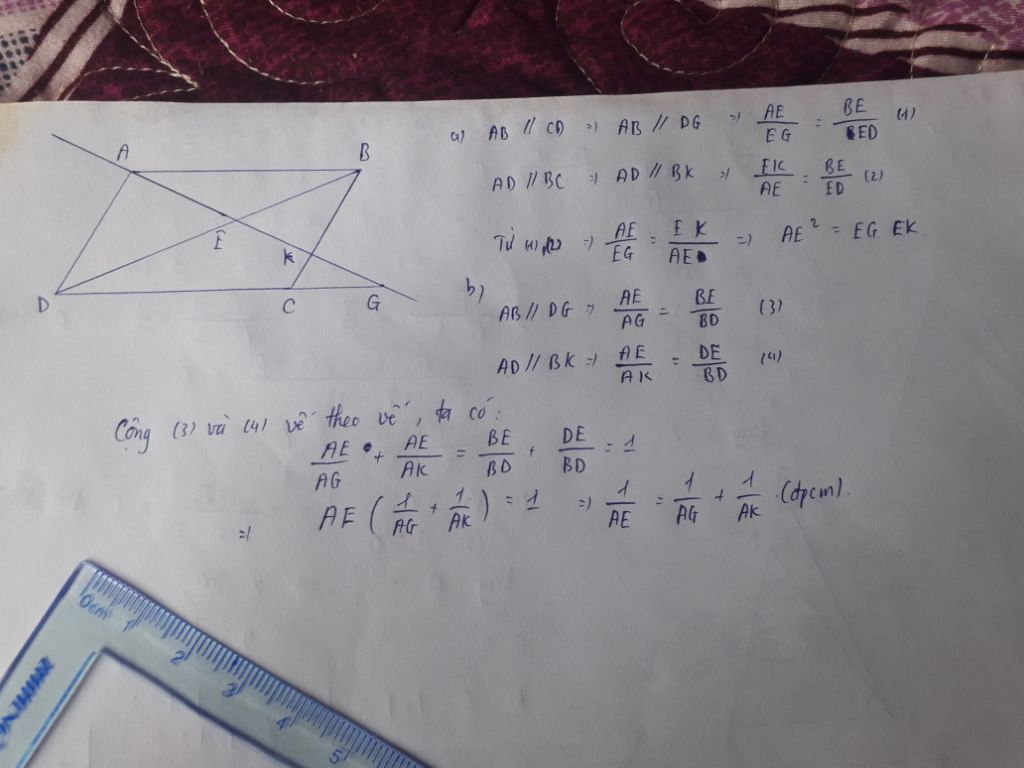 A
B
E
K
D
C
G
a) AB // CD => AB // DG => AE/EG = BE/ED (1)
AD // BC => AD // BK => EK/AE = BE/ED (2)
Từ (1), (2) => AE/EG = EK/AE => AE² = EG. EK.
b)
AB // DG => AE/AG = BE/BD (3)
AD // BK => AE/AK = DE/BD (4)
Cộng (3) và (4) vế theo vế, ta có:
AE/AG + AE/AK = BE/BD + DE/BD = 1
=> AE (1/AG + 1/AK) = 1 => 1/AE = 1/AG + 1/AK. (đpcm).
0cm 1 2 3 4 5